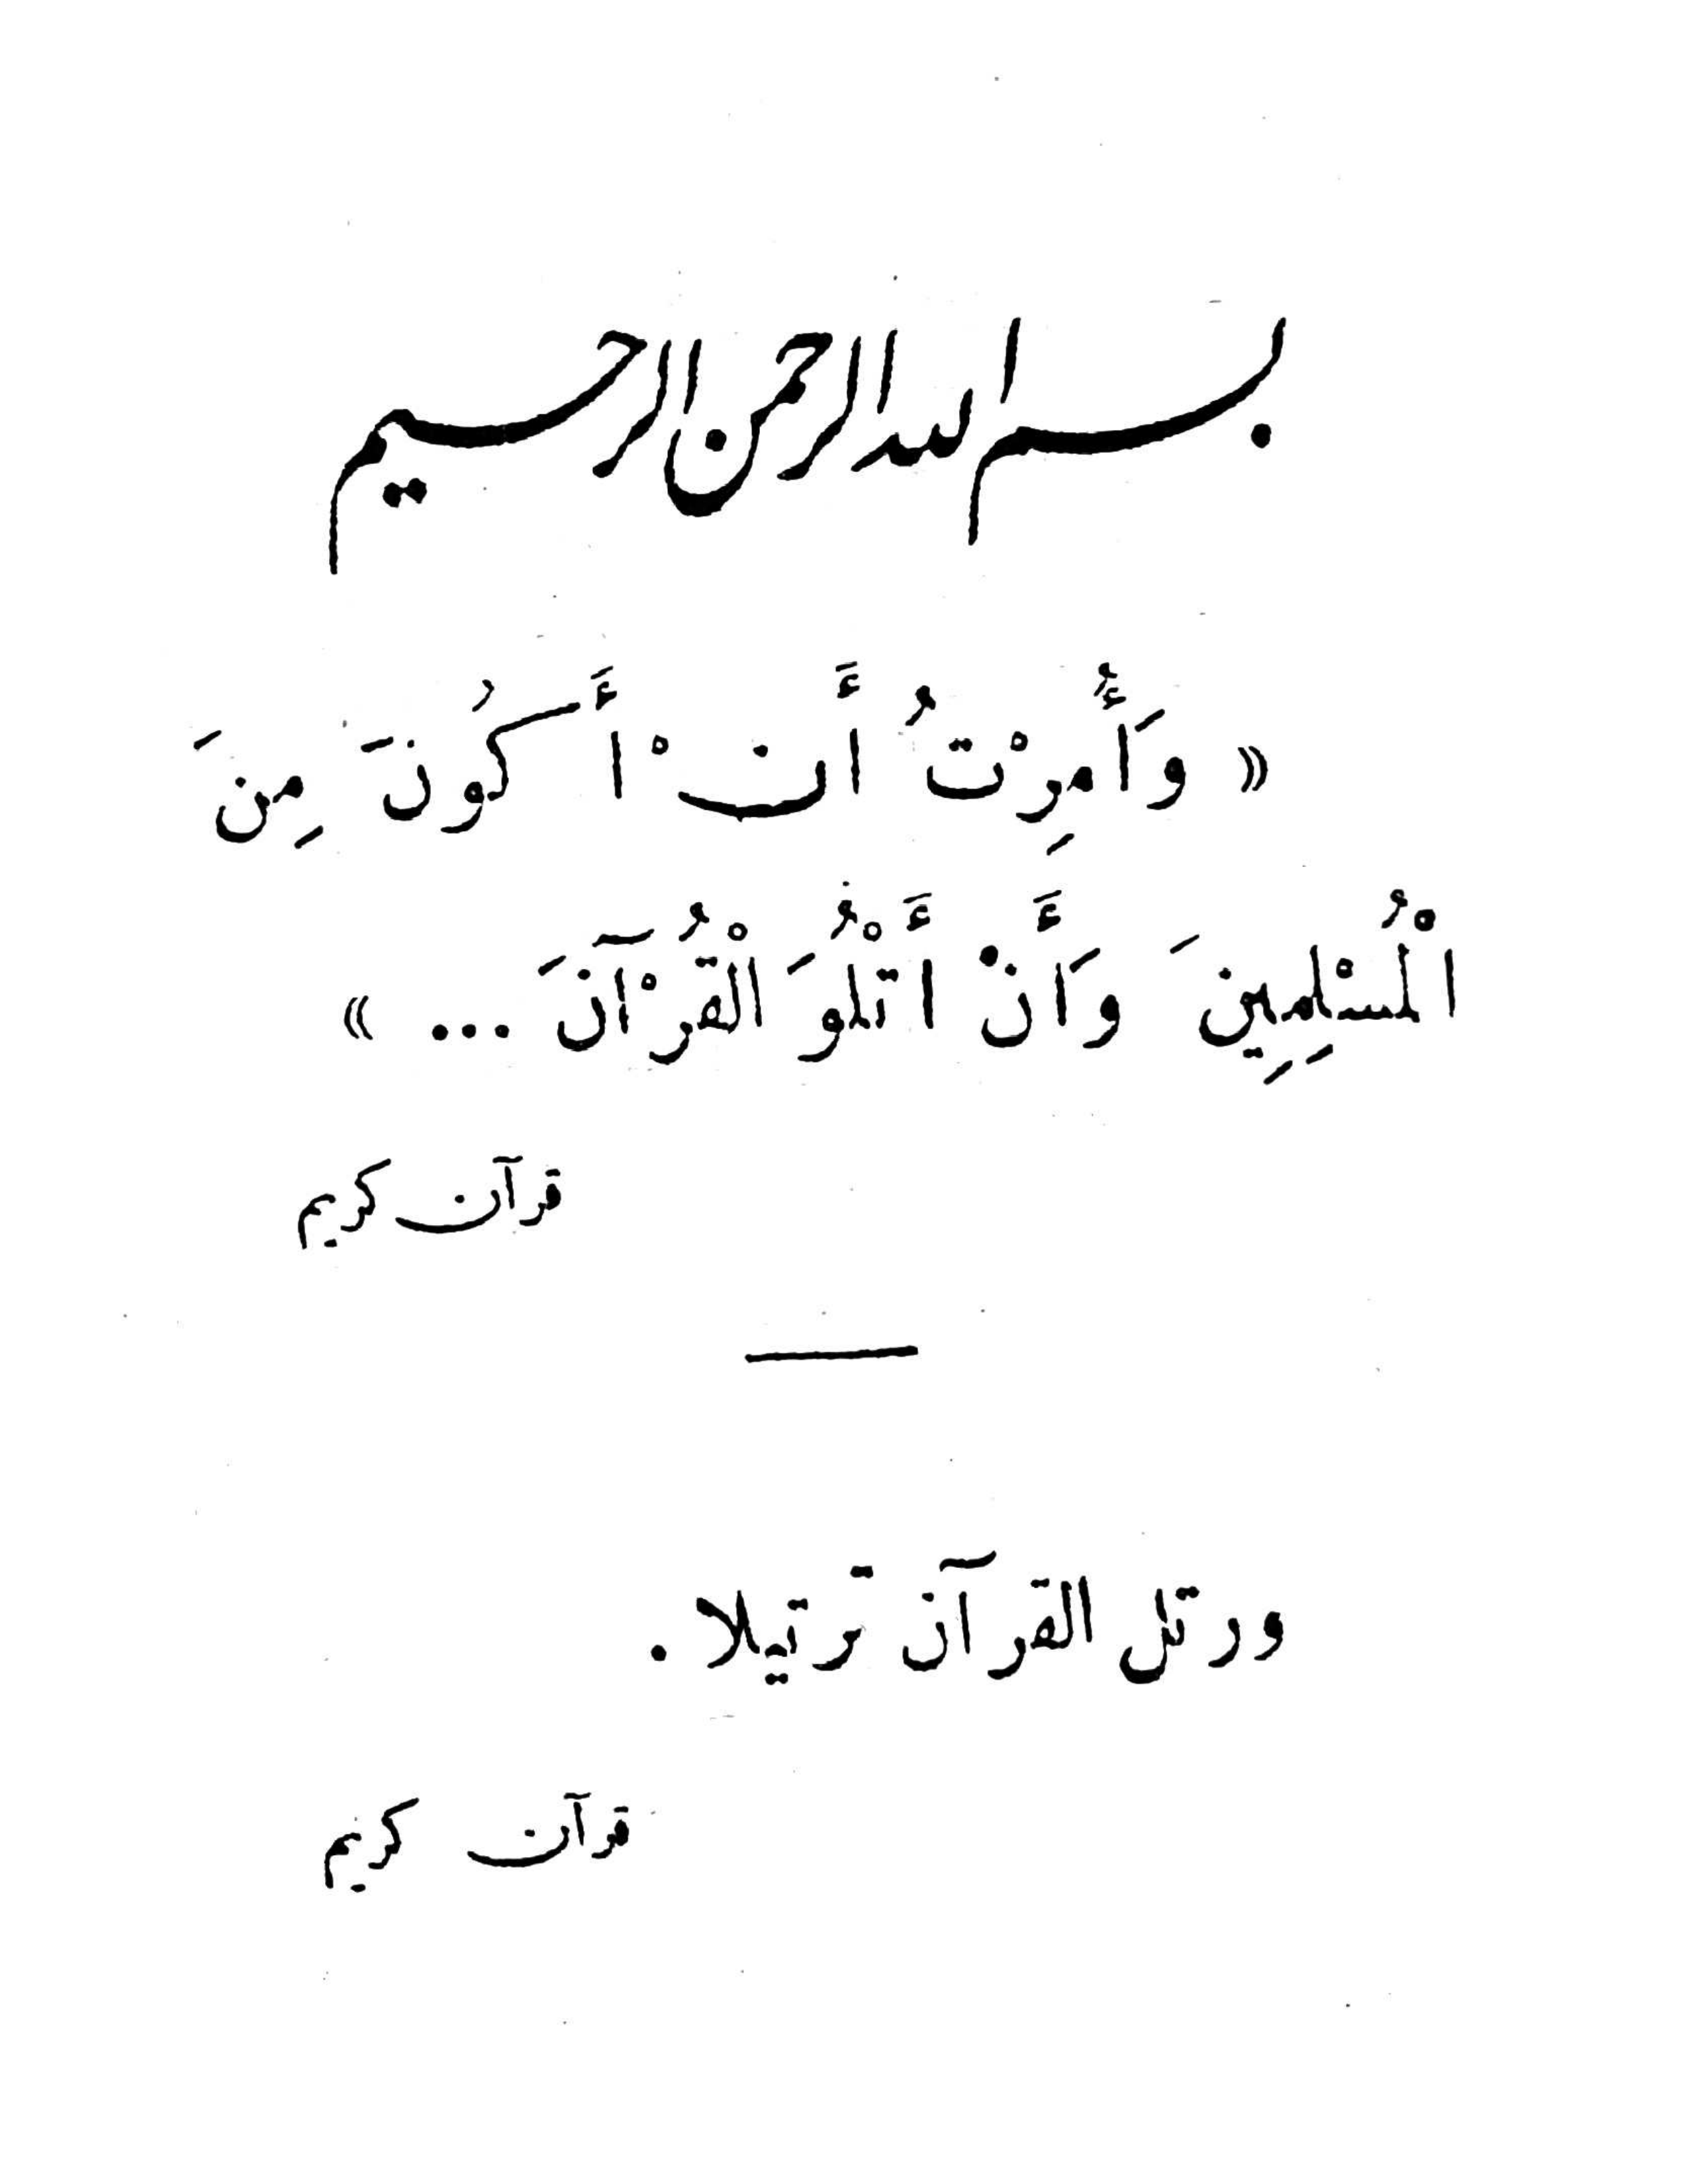 بسم الله الرحمن الرحيم
« وَأُمِرْتُ أَنْ أَكُونَ مِنَ
الْمُسْلِمِينَ وَأَنْ أَتْلُوَ الْقُرْآنَ ... »
قرآن كريم
ورتل القرآن ترتيلا .
قرآن كريم